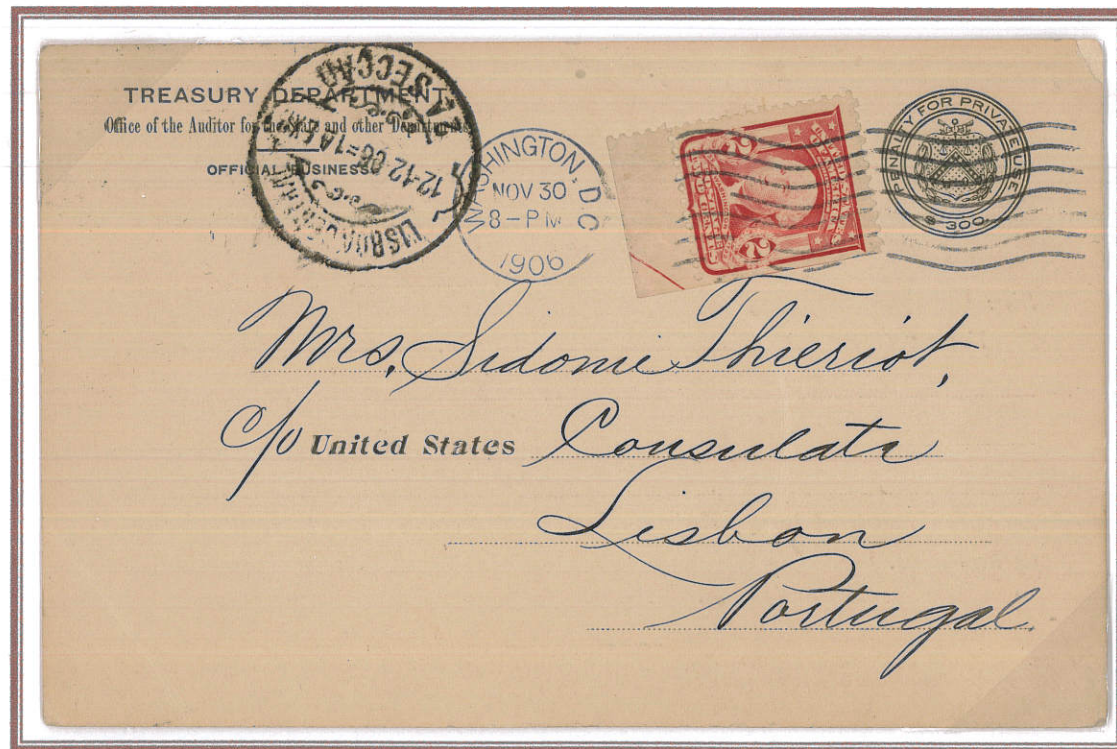 TREASURY DEPARTMENT,
Office of the Auditor for the State and other Departments
OFFICIAL BUSINESS
LISBOA CENTRAL
12-12 06=1
1A SECCAO
WASHINGTON. D.C
NOV 30
8-PM
1906
2 2
PENALTY FOR PRIVATE USE
$ 300.
Mrs. Sidomie Thieriot,
c/o United States Consulata
Lisbon
Portugal.